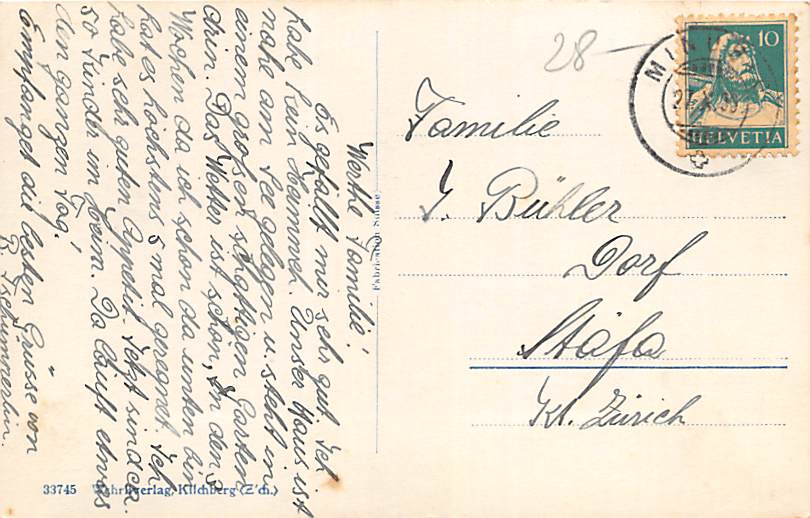 Werthe Familie!
Es gefällt mir sehr gut. Ich
habe kein Hammweh. Unser Haus ist
nahe am See gelegen u. steht in
einem grosen schattigen Garten
drin. Das Wetter ist schön, In den 3
Wochen da ich schon da unten bin
hat es höchstens 5 mal geregnet. Ich
habe sehr guten Appetit. Jetzt sind ca.
50 Kinder im Heim. Da lauft etwas
den ganzen Tag!
Empfanget die besten Grüsse von
B. Tschümperlin.
28
10
HELVETIA
MINUSIO
Familie
J. Bühler
Dorf
Stäfa
Kt. Zürich
Fabrication Suisse
33745 Wehrliverlag, Kilchberg (Z'ch.)